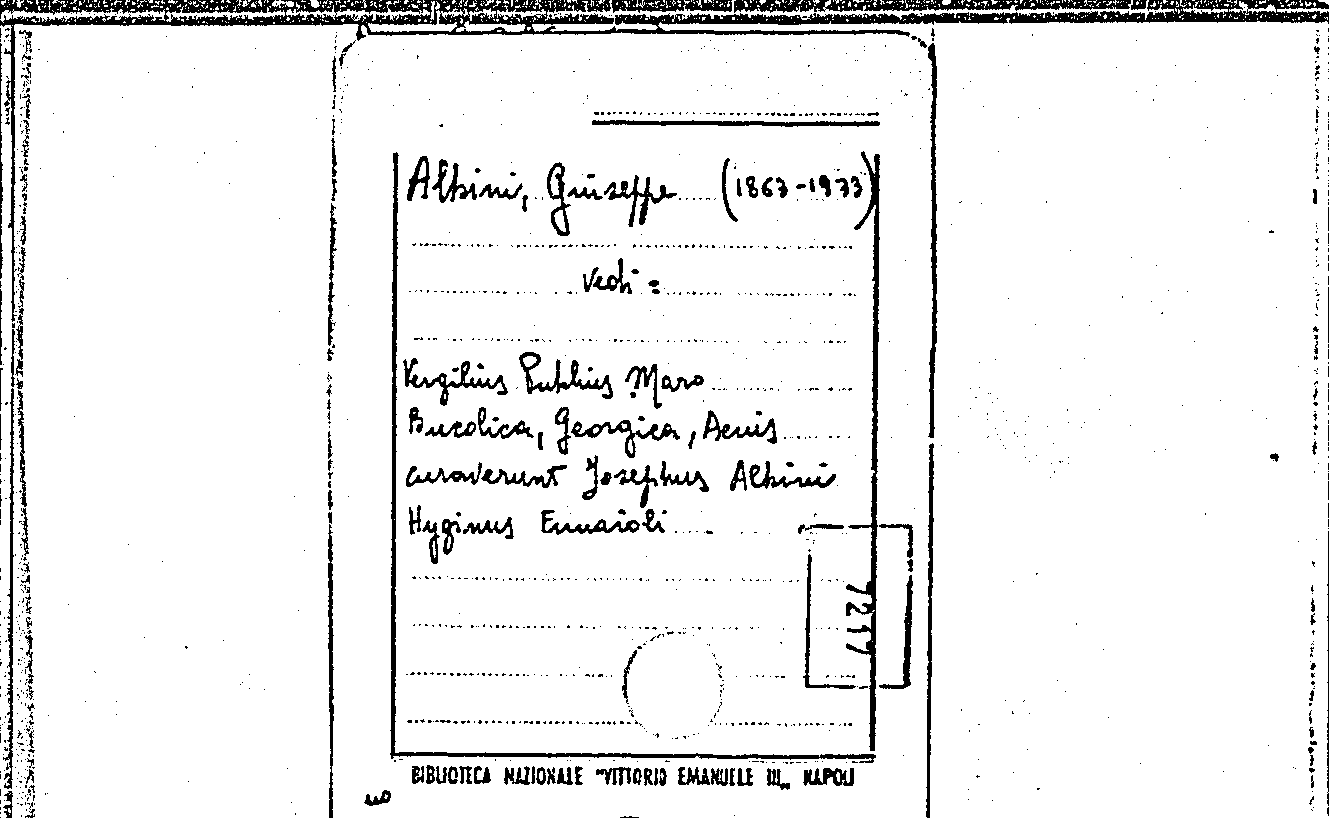 Albini, Giuseppe (1863-1933)
Vedi =
Vergilius Publius Maro
Bucolica, Georgica, Aenis
curaverunt Josephus Albini
Hyginus Ennaioli
7217
BIBLIOTECA NAZIONALE "VITTORIO EMANUELE III„ NAPOLI